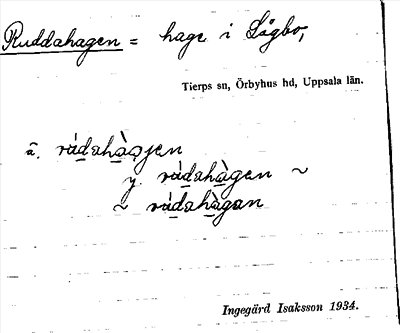 Ruddahagen = hage i Lågbo,
Tierps sn, Örbyhus hd, Uppsala län.
ä. rúdahàgen
y rúdahàgen ~
~ rúdahàgan
Ingegärd Isaksson 1934.